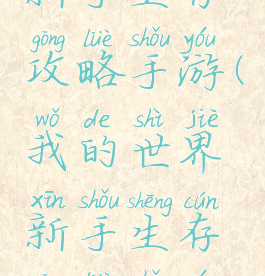 新手生存
gōng lüè shǒu yóu
攻略手游(
wǒ de shì jiè
我的世界
xīn shǒu shēng cún
新手生存